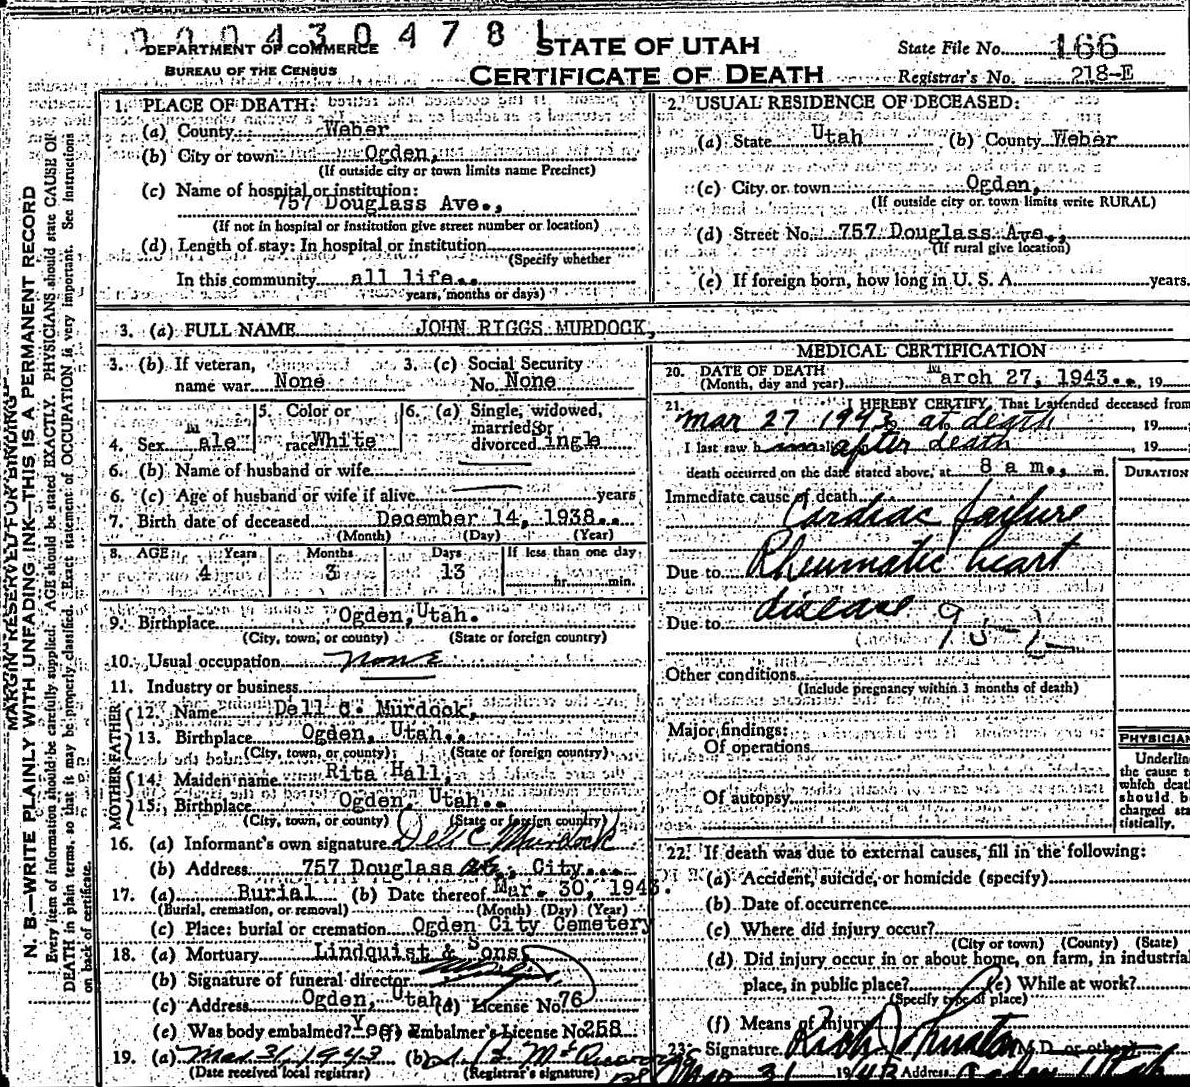 000430478
DEPARTMENT OF COMMERCE
BUREAU OF THE CENSUS
STATE OF UTAH
CERTIFICATE OF DEATH
State File No. 166
Registrar's No. 218-E
MARGIN RESERVED FOR BINDING
N. B.—WRITE PLAINLY WITH UNFADING INK—THIS IS A PERMANENT RECORD
Every item of information should be carefully supplied. AGE should be stated EXACTLY. PHYSICIANS should state CAUSE OF
DEATH in plain terms, so that it may be properly classified. Exact statement of OCCUPATION is very important. See instructions
on back of certificate.
1. PLACE OF DEATH:
(a) County Weber
(b) City or town Ogden,
(If outside city or town limits name Precinct)
(c) Name of hospital or institution:
757 Douglass Ave.,
(If not in hospital or institution give street number or location)
(d) Length of stay: In hospital or institution
(Specify whether
In this community all life..
years, months or days)
2. USUAL RESIDENCE OF DECEASED:
(a) State Utah (b) County Weber
(c) City or town Ogden,
(If outside city or town limits write RURAL)
(d) Street No. 757 Douglass Ave.,
(If rural give location)
(e) If foreign born, how long in U. S. A years.
3. (a) FULL NAME JOHN RIGGS MURDOCK,
3. (b) If veteran, name war None
3. (c) Social Security No. None
4. Sex Male
5. Color or race White
6. (a) Single, widowed, married or divorced Single
6. (b) Name of husband or wife
6. (c) Age of husband or wife if alive years
7. Birth date of deceased December 14, 1938..
(Month) (Day) (Year)
8. AGE: Years Months Days If less than one day
4 3 13 hr. min.
9. Birthplace Ogden, Utah.
(City, town, or county) (State or foreign country)
10. Usual occupation none
11. Industry or business
FATHER
12. Name Dell C. Murdock,
13. Birthplace Ogden, Utah..
(City, town, or county) (State or foreign country)
MOTHER
14. Maiden name Rita Hall,
15. Birthplace Ogden, Utah..
(City, town, or county) (State or foreign country)
16. (a) Informant's own signature Dell C Murdock
(b) Address 757 Douglass Ave, City...
17. (a) Burial (b) Date thereof Mar. 30, 1943.
(Burial, cremation, or removal) (Month) (Day) (Year)
(c) Place: burial or cremation Ogden City Cemetery
18. (a) Mortuary Lindquist & Sons
(b) Signature of funeral director
(c) Address Ogden, Utah. (d) License No. 76
(e) Was body embalmed? Yes (f) Embalmer's License No. 258
19. (a) Mar 31, 1943 (b)
(Date received local registrar) (Registrar's signature)
MEDICAL CERTIFICATION
20. DATE OF DEATH
(Month, day and year) March 27, 1943.., 19
21. I HEREBY CERTIFY, That I attended deceased from
Mar 27 1943 at death, 19
I last saw him alive after death, 19
death occurred on the date stated above, at 8 a m., m.
DURATION
Immediate cause of death
Cardiac failure
Due to Rheumatic heart
disease
Due to 95-
Other conditions
(Include pregnancy within 3 months of death)
Major findings:
Of operations
Of autopsy
PHYSICIAN
Underline
the cause to
which death
should be
charged sta
tistically.
22. If death was due to external causes, fill in the following:
(a) Accident, suicide, or homicide (specify)
(b) Date of occurrence
(c) Where did injury occur?
(City or town) (County) (State)
(d) Did injury occur in or about home, on farm, in industrial
place, in public place? (e) While at work?
(Specify type of place)
(f) Means of injury
23. Signature Rich Johnston (M.D. or other)
Mar 31 1943 Address Ogden Utah